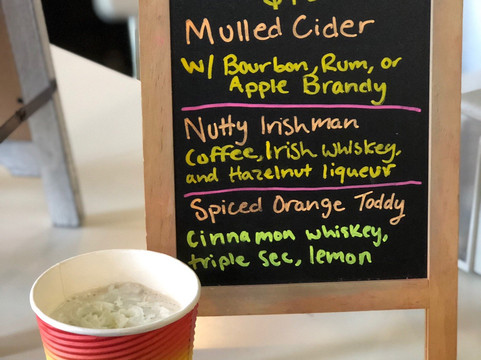 Mulled Cider
w/ Bourbon, Rum, or
Apple Brandy
Nutty Irishman
Coffee, Irish whiskey,
and Hazelnut liqueur
Spiced Orange Toddy
cinnamon whiskey,
triple sec, lemon